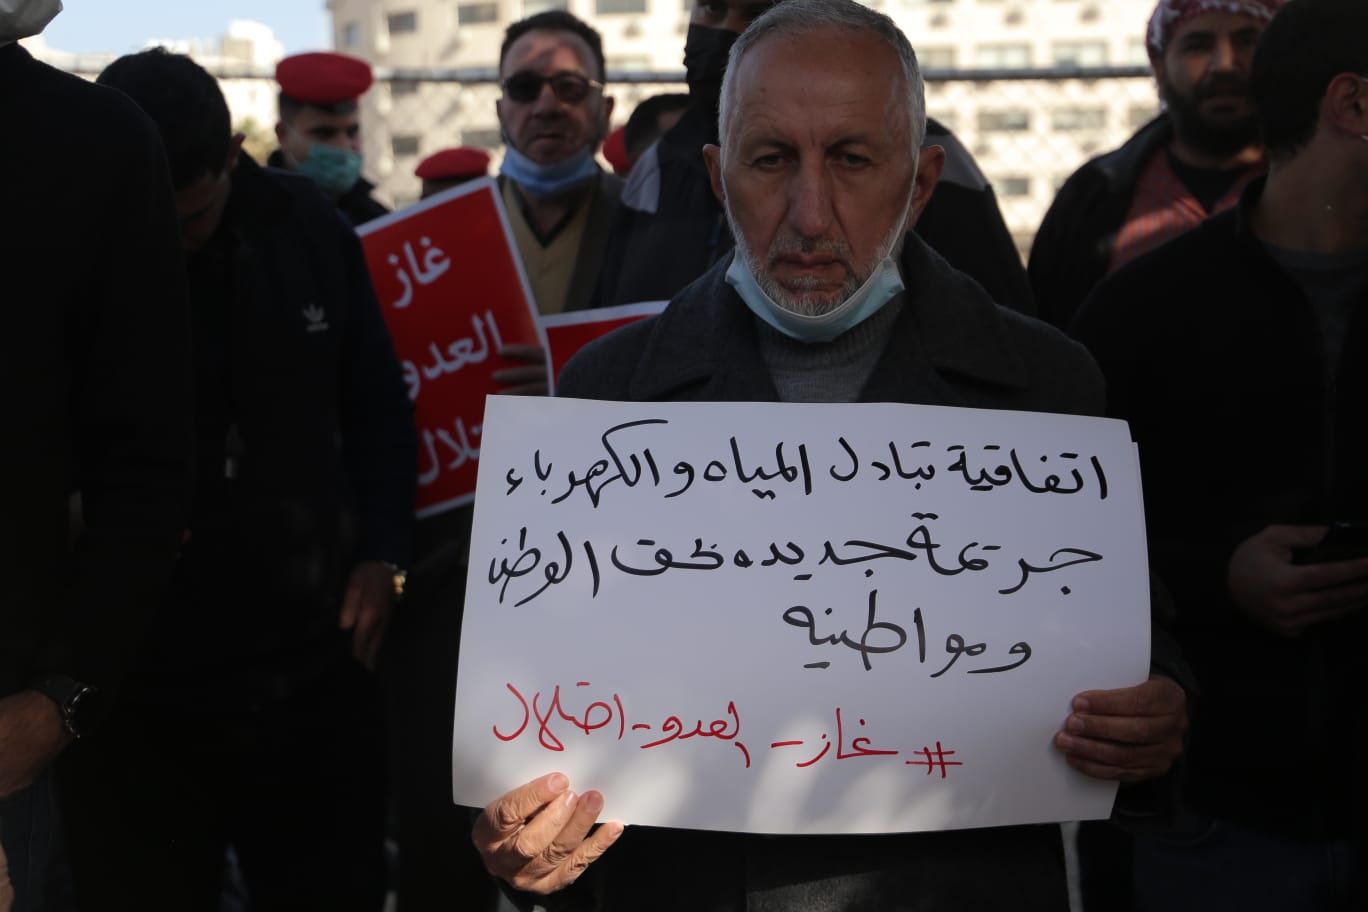 غاز
العدو
تلال
اتفاقية تبادل المياه والكهرباء
جريمة جديده بحق الوطن
ومواطنيه
# غاز - العدو - احتلال